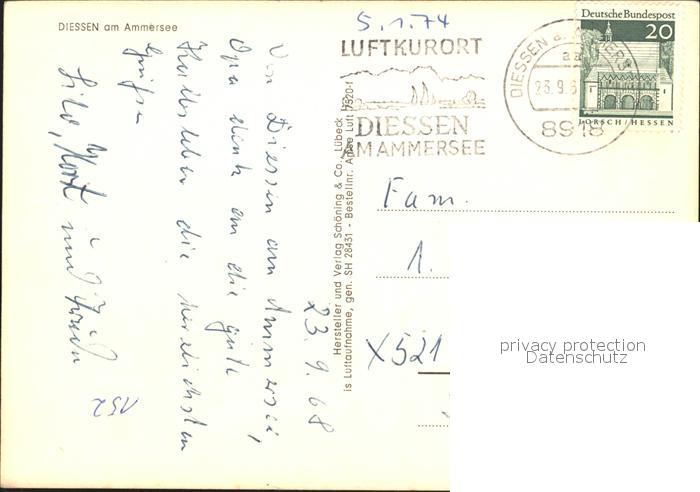 DIESSEN am Ammersee
5.1.74
LUFTKURORT
DIESSEN
AM AMMERSEE
DIESSEN a. AMMERS
aa
23.9.6
8918
Deutsche Bundespost
20
LORSCH/HESSEN
23.9.68
Von Diessen am Ammersee,
Opa denk an die gute
die herzlichsten
Grüße
und
152
Hersteller und Verlag Schöning & Co., Lübeck
is Luftaufnahme, gen. SH 28431 - Bestellnr. Ansce Luft 7520
Fam.
1.
X521
privacy protection
Datenschutz